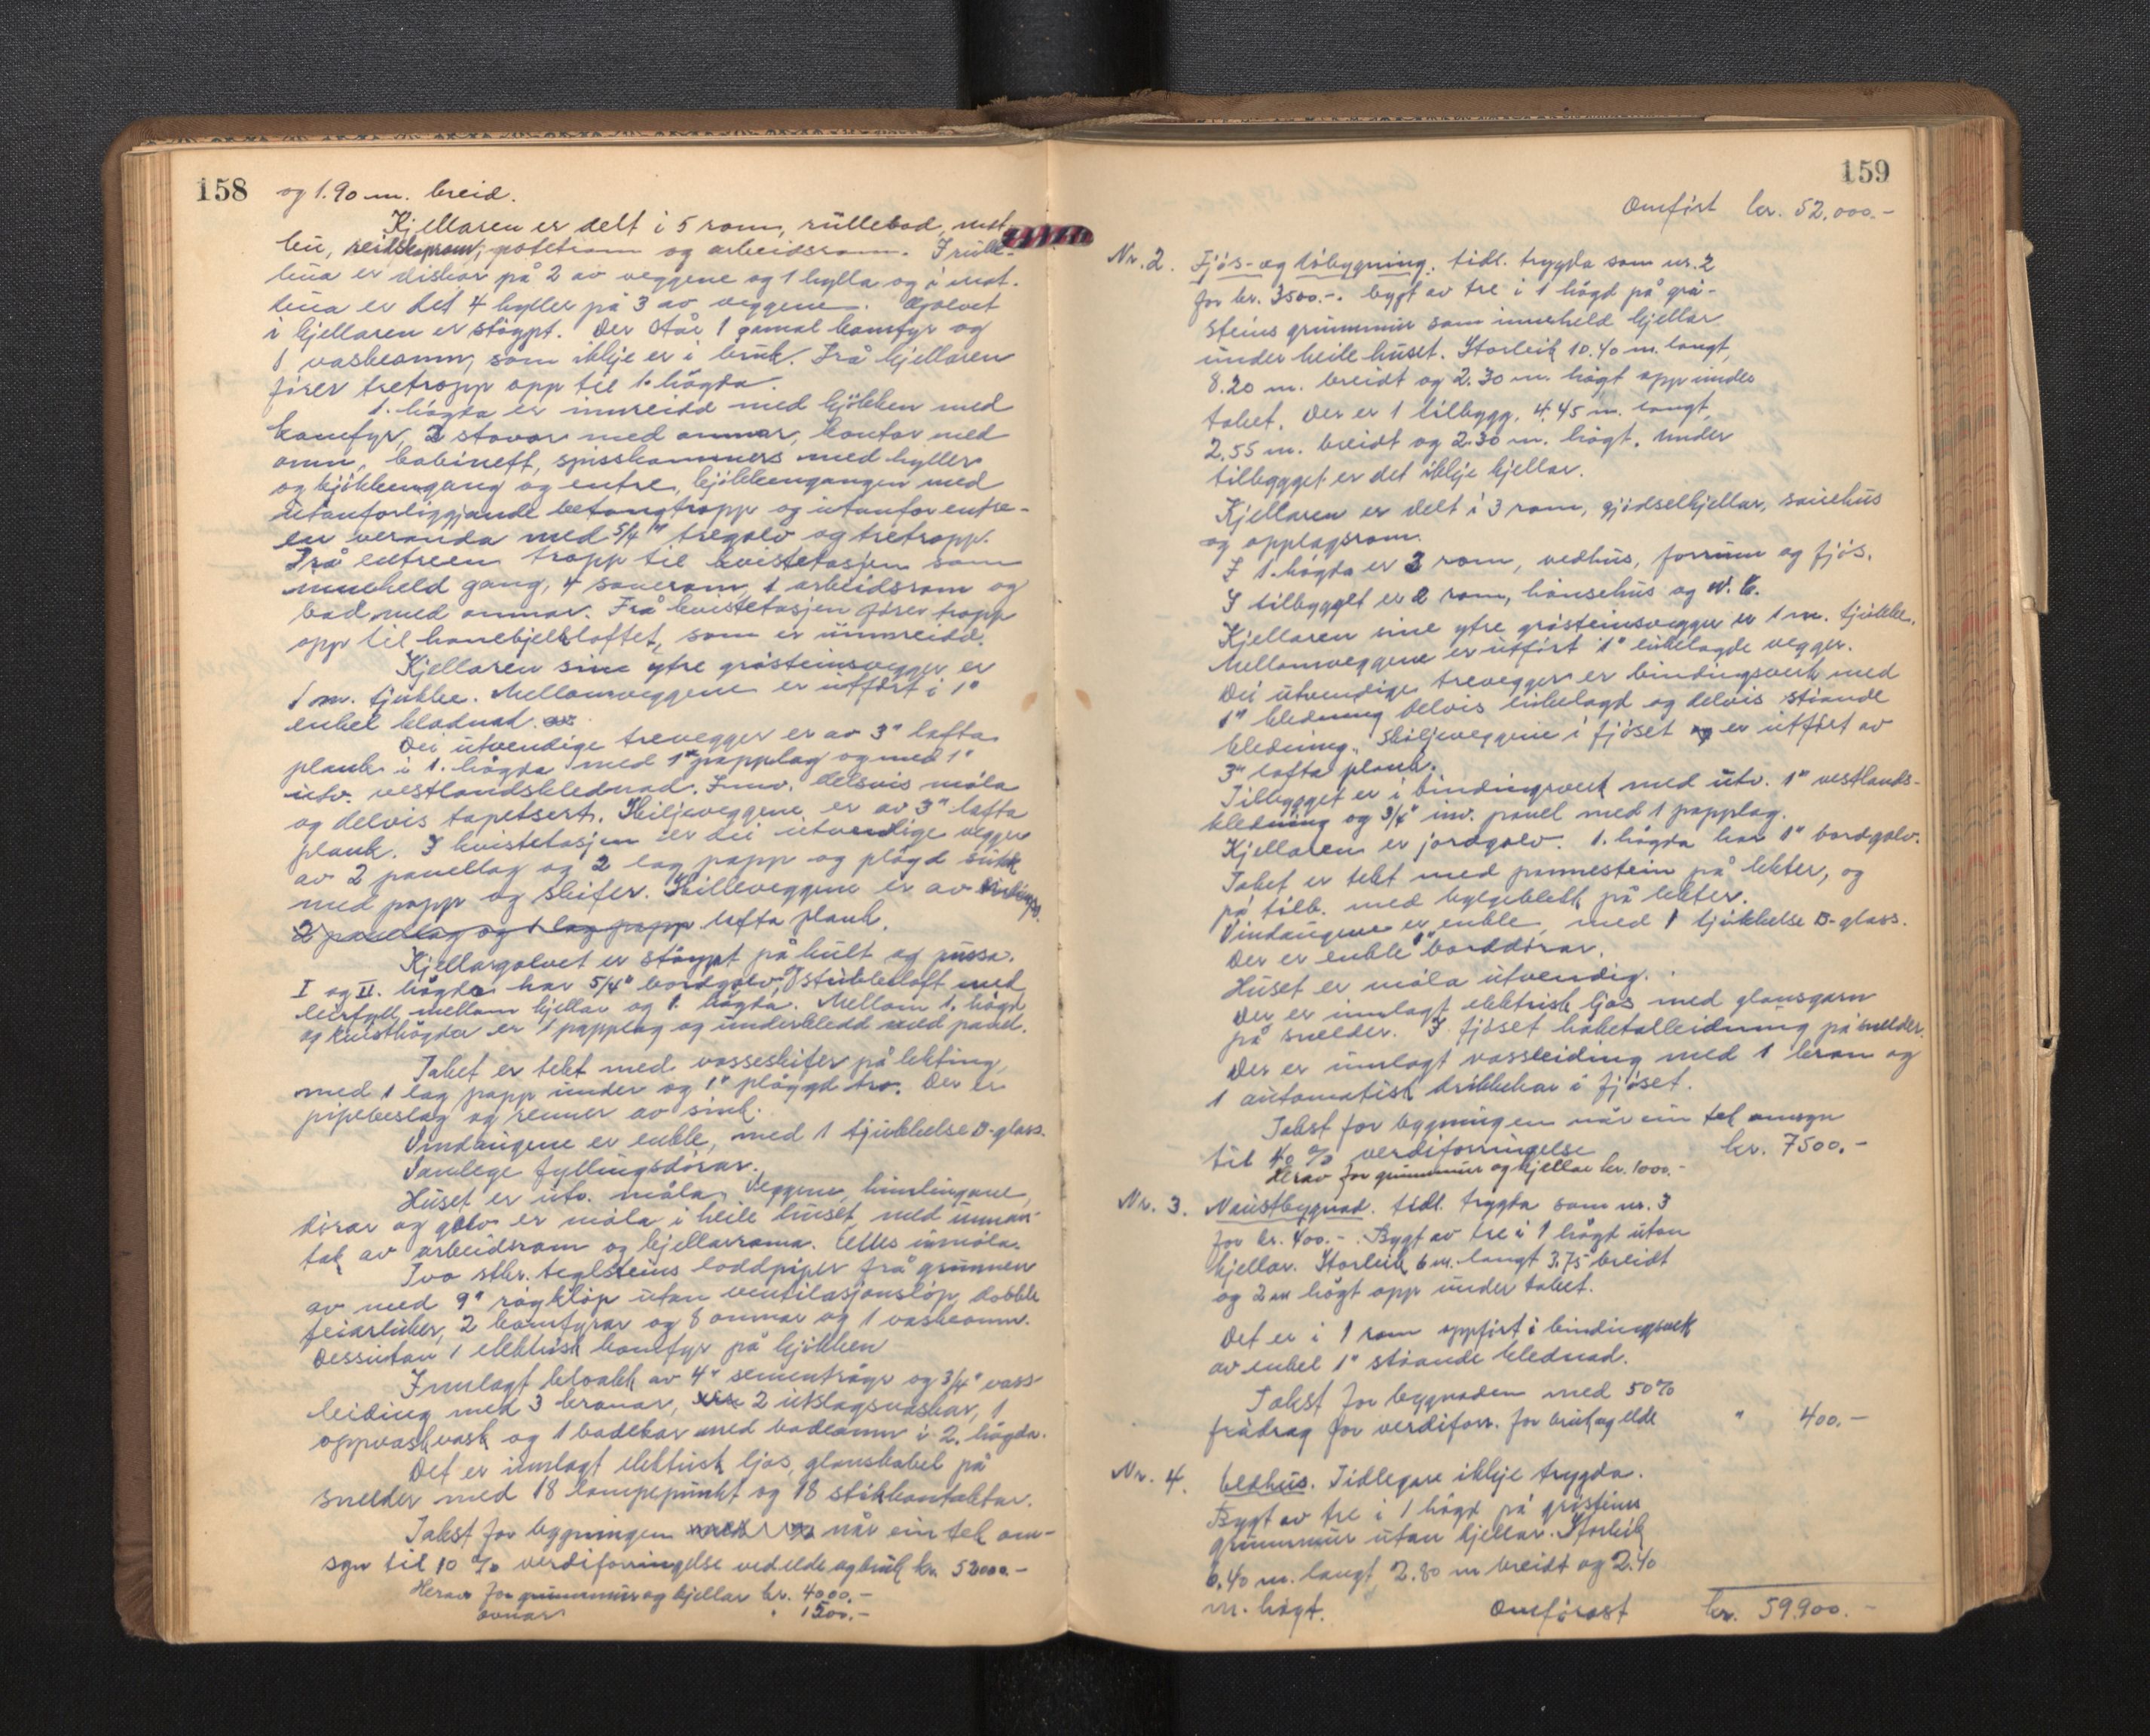 158
og 1.90 m. breid.
Kjellaren er delt i 5 rom, rullebod, mat-
bu, reidskaprom, potetrom og arbeidsrom. I rulle-
bua er diskar på 2 av veggene og 1 hylla og i mat-
bua er det 4 hyller på 3 av veggene. Golvet
i kjellaren er støypt. Der står 1 gamal komfyr og
1 vaskeomn, som ikkje er i bruk. Frå kjellaren
fører tretropp opp til 1. høgda.
1. høgda er innreidd med kjøkken med
komfyr, 2 stovor med omnar, kontor med
omn, kabinett, spisskammers med hyller
og kjøkkengang og entre, kjøkkengangen med
utanforliggjande betongtropp og utanfor entre-
en veranda med 5/4" tregolv og tretropp.
Frå entreen tropp til kvistetasjen som
inneheld gang, 4 soverom, 1 arbeidsrom og
bad med omnar. Frå kvistetasjen fører tropp
opp til hanebjelkloftet, som er uinnreidd.
Kjellaren sine ytre gråsteinsvegger er
1 m. tjukke. Mellomveggene er utført i 1"
enkel kladnad.
Dei utvendige trevegger er av 3" lafta
plank i 1. høgda med 1 papplag og med 1"
utv. vestlandsklednad. Innv. delsvis måla
og delvis tapetsert. Skiljeveggene er av 3" lafta
plank. I kvistetasjen er dei utvendige vegger
av 2 panellag og 2 lag papp og pløgd
med papp og skifer. Skilleveggene er av
2 panellag og 1 lag papp lafta plank.
Kjellargolvet er støypt på kult og pussa.
I og II. høgda har 5/4" bordgolv, stubbeloft med
leirfyll mellom kjellar og 1. høgda. Mellom 1. høgd
og kvisthøgda er 1 papplag og underkledd med panel.
Taket er tekt med vosseskifer på lekting
med 1 lag papp under og 1" pløygd tro. Der er
pipebeslag og renner av sink.
Vindaugene er enkle, med 1 tjukkelse B-glass.
Vanlege fyllingsdørar.
Huset er utv. måla. Veggene, himlingane,
dørar og golv er måla i heile huset, med unnan-
tak av arbeidsrom og kjellarroma. Elles umåla.
Tvo stkr. teglsteins loddpiper frå grunnen
av med 9" røykløp utan ventilasjonsløp, dobble
feiarluker, 2 komfyrar og 8 omnar og 1 vaskeomn.
Dessutan 1 elektrisk komfyr på kjøkken
Innlagt kloakk av 4" sementrøyr og 3/4" vass-
leiding med 3 kranar, 2 utslagsvaskar, 1
oppvaskvask og 1 badekar med badeomn i 2. høgda.
Det er innlagt elektrisk ljos, glanskabel på
snelder med 18 lampepunkt og 18 stikkontaktar.
Takst for bygningen når ein tek om-
syn til 10 % verdiforringelse ved elde og bruk kr. 52000.-
Herav for grunnmur og kjellar kr. 4000.-
ovnar " 1500.-
159
Omført kr. 52.000.-
Nr. 2. Fjøs- og løbygning. tidl. trygda som nr. 2
for kr. 3500.-. bygt av tre i 1 høgd på grå-
steins grunnmur som inneheld kjellar
under heile huset. Storleik 10.40 m. langt,
8.20 m. breidt og 2.30 m. høgt opp under
taket. Der er 1 tilbygg, 4.45 m. langt,
2.55 m. breidt og 2.30 m. høgt. Under
tilbygget er det ikkje kjellar.
Kjellaren er delt i 3 rom, gjødselkjellar, sauehus
og opplagsrom.
I 1. høgda er 3 rom, vedhus, forrum og fjøs.
I tilbygget er 2 rom, hønsehus og W. C.
Kjellaren sine ytre gråsteinsvegger er 1 m. tjukke.
Mellomveggene er utført 1" enkelagde vegger.
Dei utvendige trevegger er bindingsverk med
1" kledning delvis enkelagd og delvis stående
kledning. Skiljeveggene i fjøset er utført av
3" lafta plank.
Tilbygget er i bindingsverk med utv. 1" vestlands-
kledning og 3/4" inv. panel med 1 papplag.
Kjellaren er jordgolv. 1. høgda har 1" bordgolv.
Taket er tekt med pannestein på lekter, og
på tilb. med bylgeblekk på lekter.
Vindaugene er enkle, med 1 tjukkelse B-glass.
Der er enkle 1" borddørar.
Huset er måla utvendig.
Der er innlagt elektrisk ljos med glansgarn
på snelder. I fjøset kabelalleidning på snelder.
Der er innlagt vassleiding med 1 kran og
1 automatisk drikkekar i fjøset.
Takst for bygningen når ein tek omsyn
til 40 % verdiforringelse kr. 7500.-
Herav for grunnmur og kjellar kr. 1000.-
Nr. 3. Naustbygnad. tidl. trygda som nr. 3
for kr. 400.-. Bygt av tre i 1 høgt utan
kjellar. Storleik 6 m. langt 3.75 breidt
og 2 m høgt opp under taket.
Det er i 1 rom oppført i bindingsverk
av enkel 1" stående klednad.
Takst for bygnaden med 50%
frådrag for verdiforr. for bruk og elde " 400.-
Nr. 4. Eldhus. Tidlegare ikkje trygda.
Bygt av tre i 1 høgd på gråsteins
grunnmur utan kjellar. Storleik
6.40 m. langt 2.80 m breidt og 2.40
m. høgt.
Omførast kr. 59.900.-